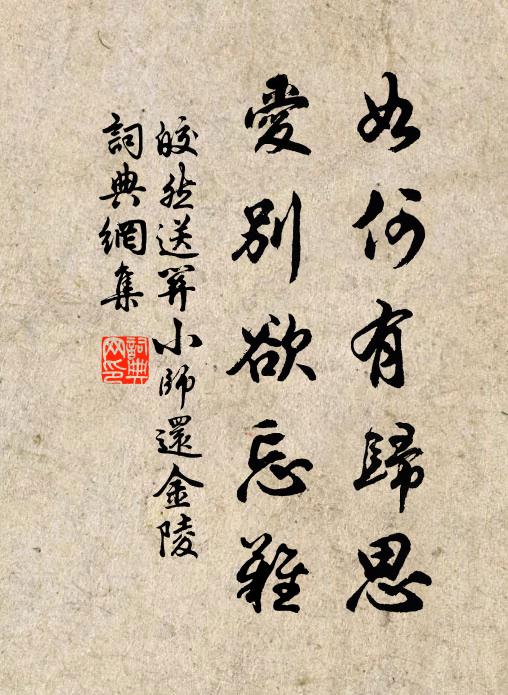 如何有歸思
愛別欲忘難
皎然送羿小師還金陵
詞典網集
詞典网印